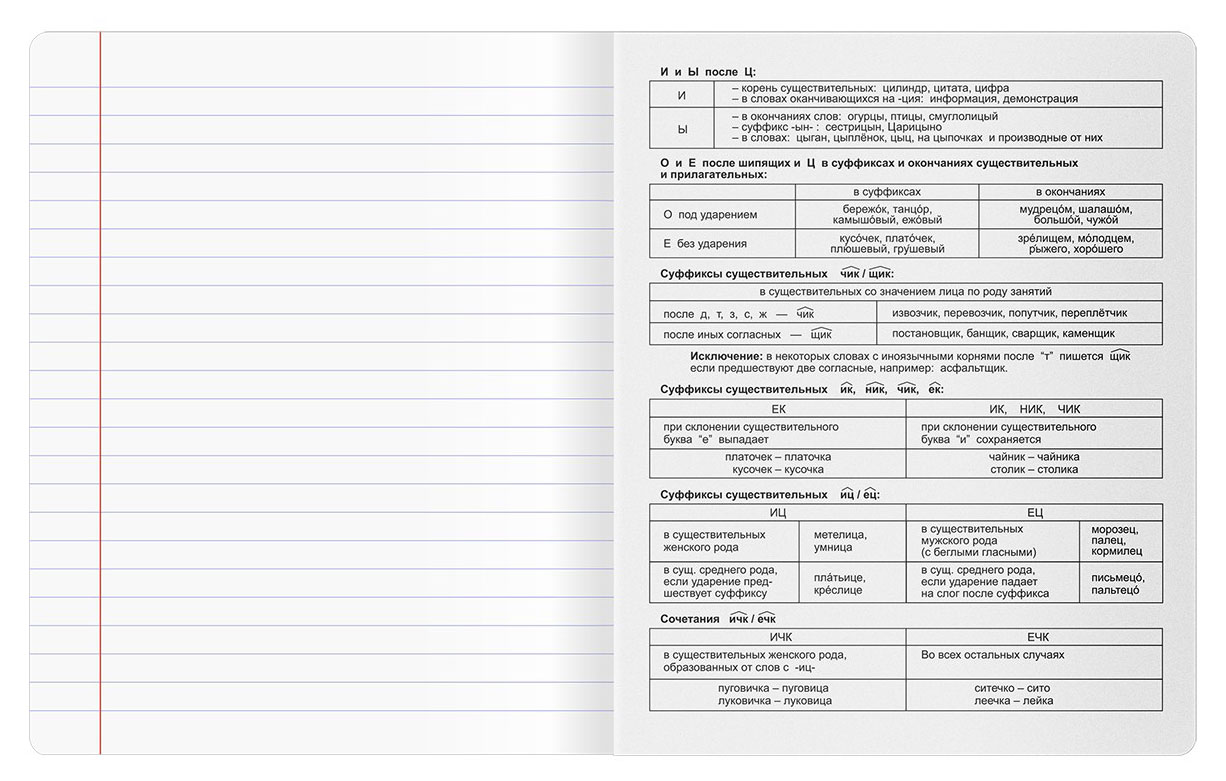 И и Ы после Ц:
И
– корень существительных: цилиндр, цитата, цифра
– в словах оканчивающихся на -ция: информация, демонстрация
Ы
– в окончаниях слов: огурцы, птицы, смуглолицый
– суффикс -ын- : сестрицын, Царицыно
– в словах: цыган, цыплёнок, цыц, на цыпочках и производные от них
О и Е после шипящих и Ц в суффиксах и окончаниях существительных
и прилагательных:
в суффиксах
в окончаниях
О под ударением
бережо́к, танцо́р,
камышо́вый, ежо́вый
мудрецо́м, шалашо́м,
большо́й, чужо́й
Е без ударения
кусо́чек, плато́чек,
плю́шевый, гру́шевый
зре́лищем, мо́лодцем,
ры́жего, хоро́шего
Суффиксы существительных чик / щик:
в существительных со значением лица по роду занятий
после д, т, з, с, ж — чик
извозчик, перевозчик, попутчик, переплётчик
после иных согласных — щик
постановщик, банщик, сварщик, каменщик
Исключение: в некоторых словах с иноязычными корнями после “т” пишется щик
если предшествуют две согласные, например: асфальтщик.
Суффиксы существительных ик, ник, чик, ек:
ЕК
ИК, НИК, ЧИК
при склонении существительного
буква “е” выпадает
при склонении существительного
буква “и” сохраняется
платочек – платочка
кусочек – кусочка
чайник – чайника
столик – столика
Суффиксы существительных иц / ец:
ИЦ
ЕЦ
в существительных
женского рода
метелица,
умница
в существительных
мужского рода
(с беглыми гласными)
морозец,
палец,
кормилец
в сущ. среднего рода,
если ударение пред-
шествует суффиксу
пла́тьице,
кре́слице
в сущ. среднего рода,
если ударение падает
на слог после суффикса
письмецо́,
пальтецо́
Сочетания ичк / ечк
ИЧК
ЕЧК
в существительных женского рода,
образованных от слов с -иц-
Во всех остальных случаях
пуговичка – пуговица
луковичка – луковица
ситечко – сито
леечка – лейка